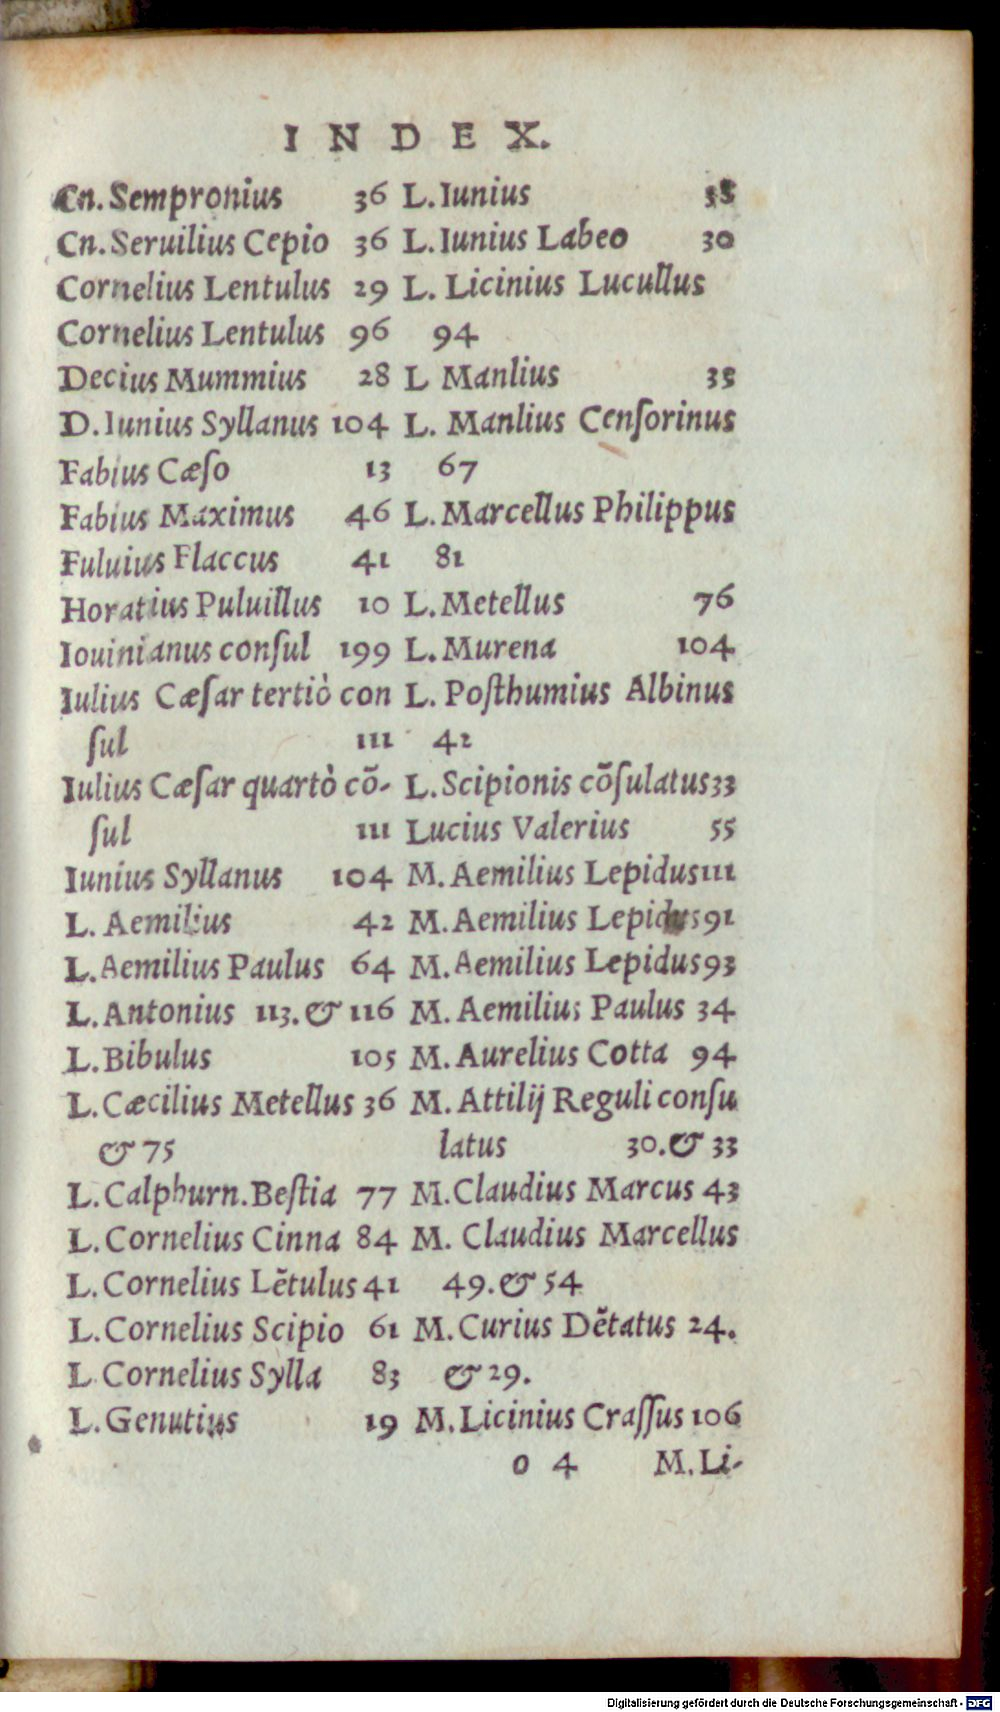 INDEX.
Cn. Sempronius 36
Cn. Seruilius Cepio 36
Cornelius Lentulus 29
Cornelius Lentulus 96
Decius Mummius 28
D. Iunius Syllanus 104
Fabius Cæſo 13
Fabius Maximus 46
Fuluius Flaccus 41
Horatius Puluillus 10
Iouinianus conſul 199
Iulius Cæſar tertiò con
ſul 111
Iulius Cæſar quartò cō-
ſul 111
Iunius Syllanus 104
L. Aemilius 42
L. Aemilius Paulus 64
L. Antonius 113. & 116
L. Bibulus 105
L. Cæcilius Metellus 36
& 75
L. Calphurn. Beſtia 77
L. Cornelius Cinna 84
L. Cornelius Lētulus 41
L. Cornelius Scipio 61
L. Cornelius Sylla 83
L. Genutius 19
L. Iunius
L. Iunius Labeo 30
L. Licinius Lucullus
94
L Manlius 35
L. Manlius Cenſorinus
67
L. Marcellus Philippus
81
L. Metellus 76
L. Murena 104
L. Poſthumius Albinus
42
L. Scipionis cōſulatus 33
Lucius Valerius 55
M. Aemilius Lepidus 111
M. Aemilius Lepidus 91
M. Aemilius Lepidus 93
M. Aemilius Paulus 34
M. Aurelius Cotta 94
M. Attilij Reguli conſu
latus 30. & 33
M. Claudius Marcus 43
M. Claudius Marcellus
49. & 54
M. Curius Dētatus 24.
& 29.
M. Licinius Craſſus 106
o 4 M. Li-
Digitalisierung gefördert durch die Deutsche Forschungsgemeinschaft - DFG